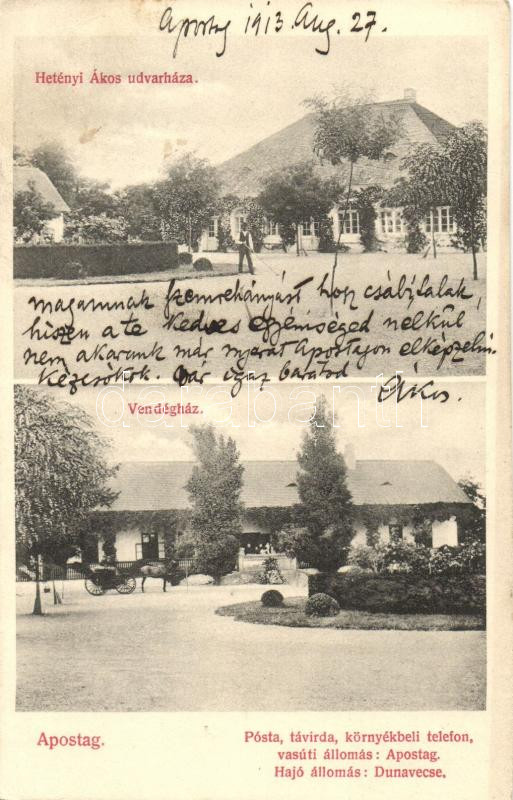 Apostag 1913 Aug. 27.
Hetényi Ákos udvarháza.
magamnak szemrehányást hogy csábítalak,
hiszen a te kedves egyéniséged nélkül
nem akarunk már nyarat Apostagon elképzelni.
Kézcsókok. igaz barátod
Ákos.
darabanth
Vendégház.
Apostag.
Pósta, távirda, környékbeli telefon,
vasúti állomás: Apostag.
Hajó állomás: Dunavecse.